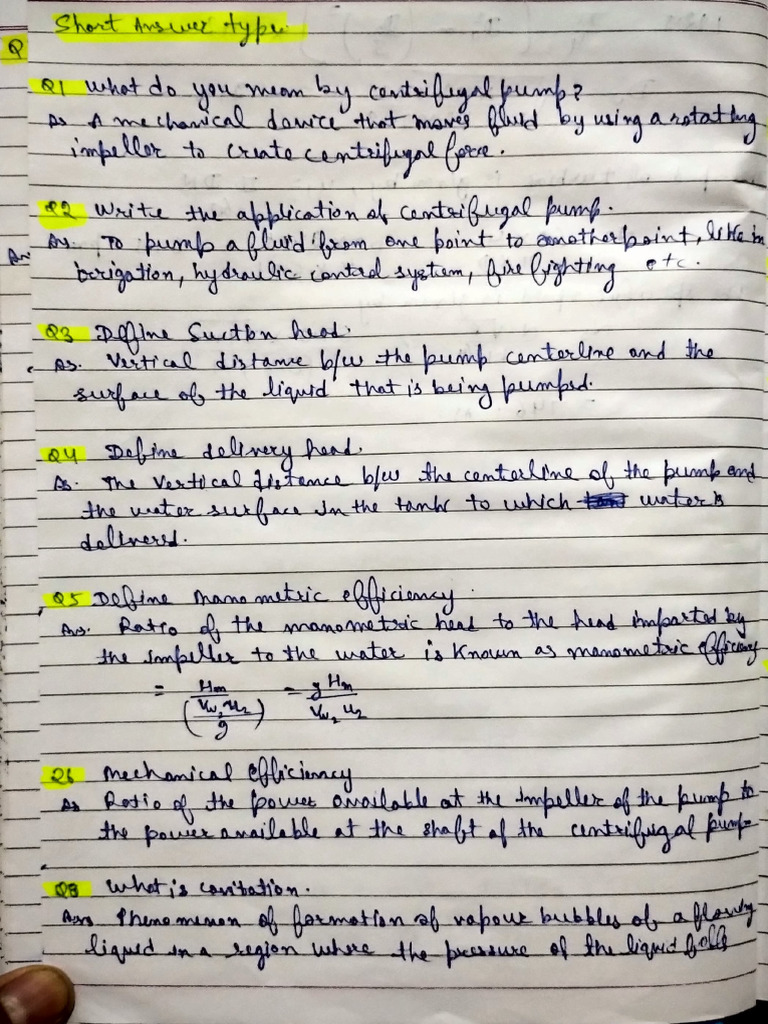 Short Answer type
Q
Q1 What do you mean by centrifugal pump?
As A mechanical device that moves fluid by using a rotating
impeller to create centrifugal force.
Q2 Write the application of centrifugal pump.
As. To pump a fluid from one point to another point, like in
irrigation, hydraulic control system, fire fighting etc.
Q3 Define Suction head.
As. Vertical distance b/w the pump centerline and the
surface of the liquid that is being pumped.
Q4 Define delivery head.
As. The vertical distance b/w the centerline of the pump and
the water surface in the tank to which water is
delivered.
Q5 Define manometric efficiency.
Ans. Ratio of the manometric head to the head imparted by
the impeller to the water is known as manometric efficiency
= Hm / (Vw2 u2 / g) = g Hm / Vw2 u2
Q6 Mechanical Efficiency
As Ratio of the power available at the impeller of the pump to
the power available at the shaft of the centrifugal pump
Q8 What is cavitation.
Ans Phenomenon of formation of vapour bubbles of a flowing
liquid in a region where the pressure of the liquid falls